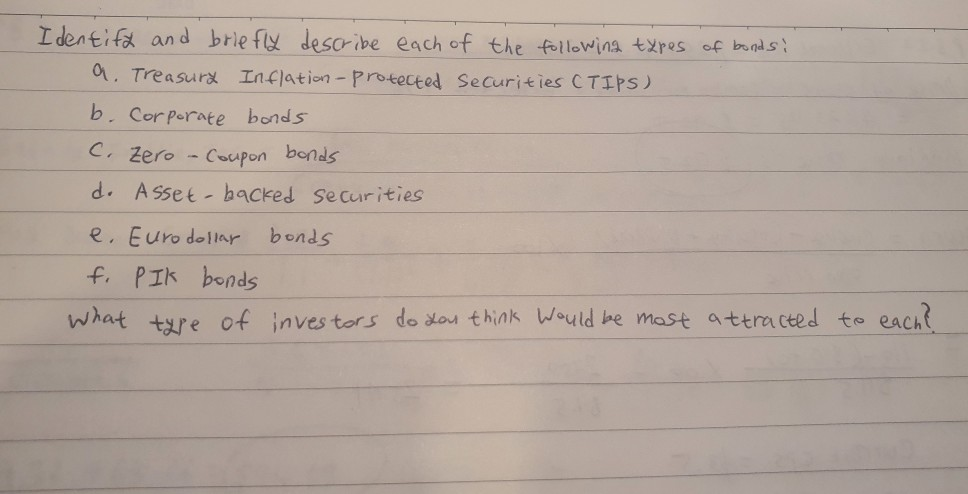 Identify and briefly describe each of the following types of bonds:
a. Treasury Inflation-Protected Securities (TIPS)
b. Corporate bonds
C. Zero-Coupon bonds
d. Asset-backed securities
e. Eurodollar bonds
f. PIK bonds
What type of investors do you think Would be most attracted to each?